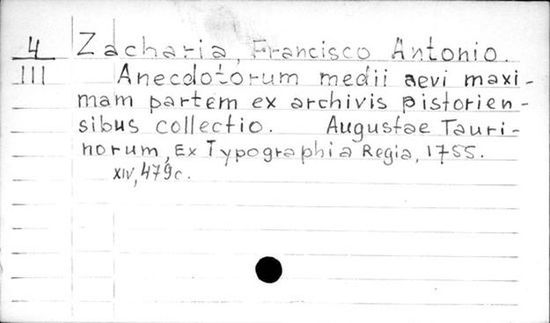 4 Zacharia, Francisco Antonio.
III Anecdotorum medii aevi maxi-
mam partem ex archivis pistorien-
sibus collectio. Augustae Tauri-
norum, Ex Typographia Regia, 1755.
XIV, 479c.